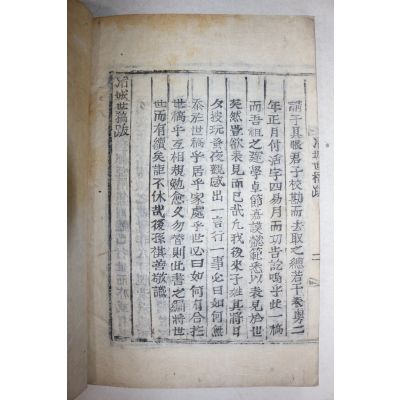 冶城世稿跋 二
請于具眼君子校勘而去取之總若干卷粤二
年正月付活字四易月而功告訖嗚乎此一稿
而吾祖之邃學卓節嘉謨懿範悉以表見於世
然豈欲表見而已哉凡我後來子姓其將日
夕披玩晝夜觀感出一言行一事必曰如何無
忝於世稿乎居乎家處乎世必曰如何有合於
世稿乎互相規勉愈久勿替則此書之編將世
世而有續矣詎不休哉後孫祺善敬識
冶城世稿跋